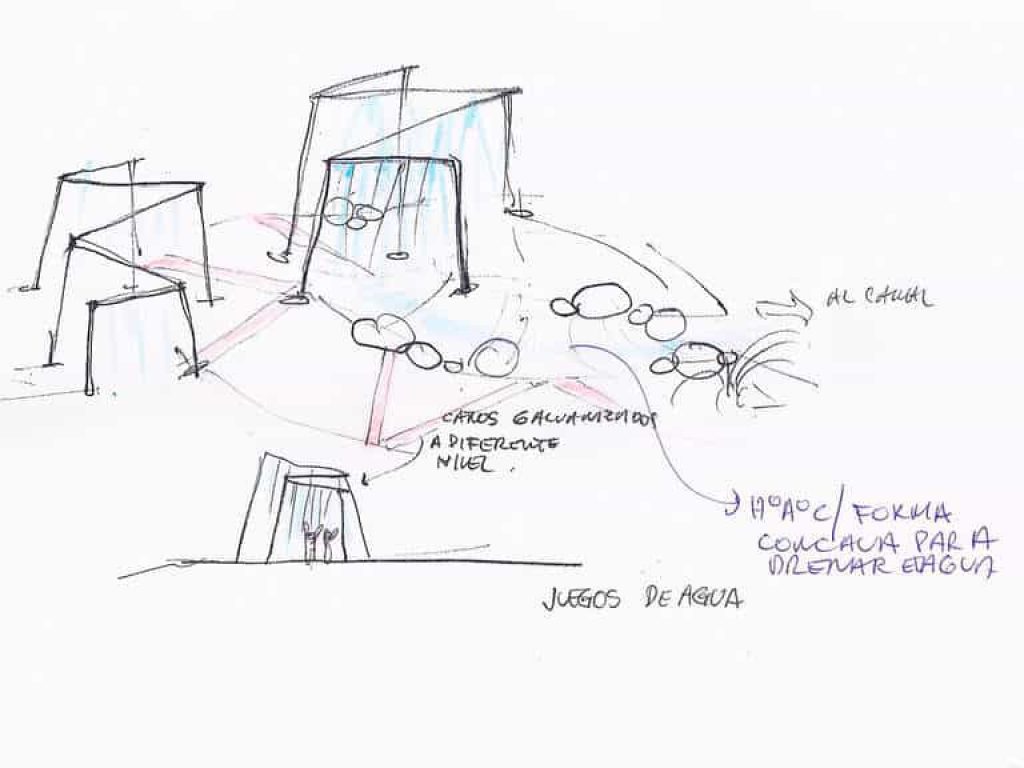 AL CANAL
CAÑOS GALVANIZADOS
A DIFERENTE
NIVEL.
HºAº C/ FORMA
CONCAVA PARA
DRENAR EL AGUA
JUEGOS DE AGUA